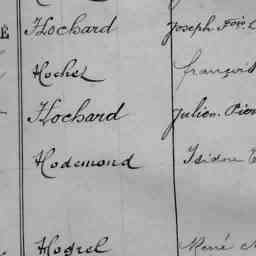 E Hochard Joseph Fois
Hochet François
Hochard Julien. Pier
Hodemond Isidore
Hogrel René